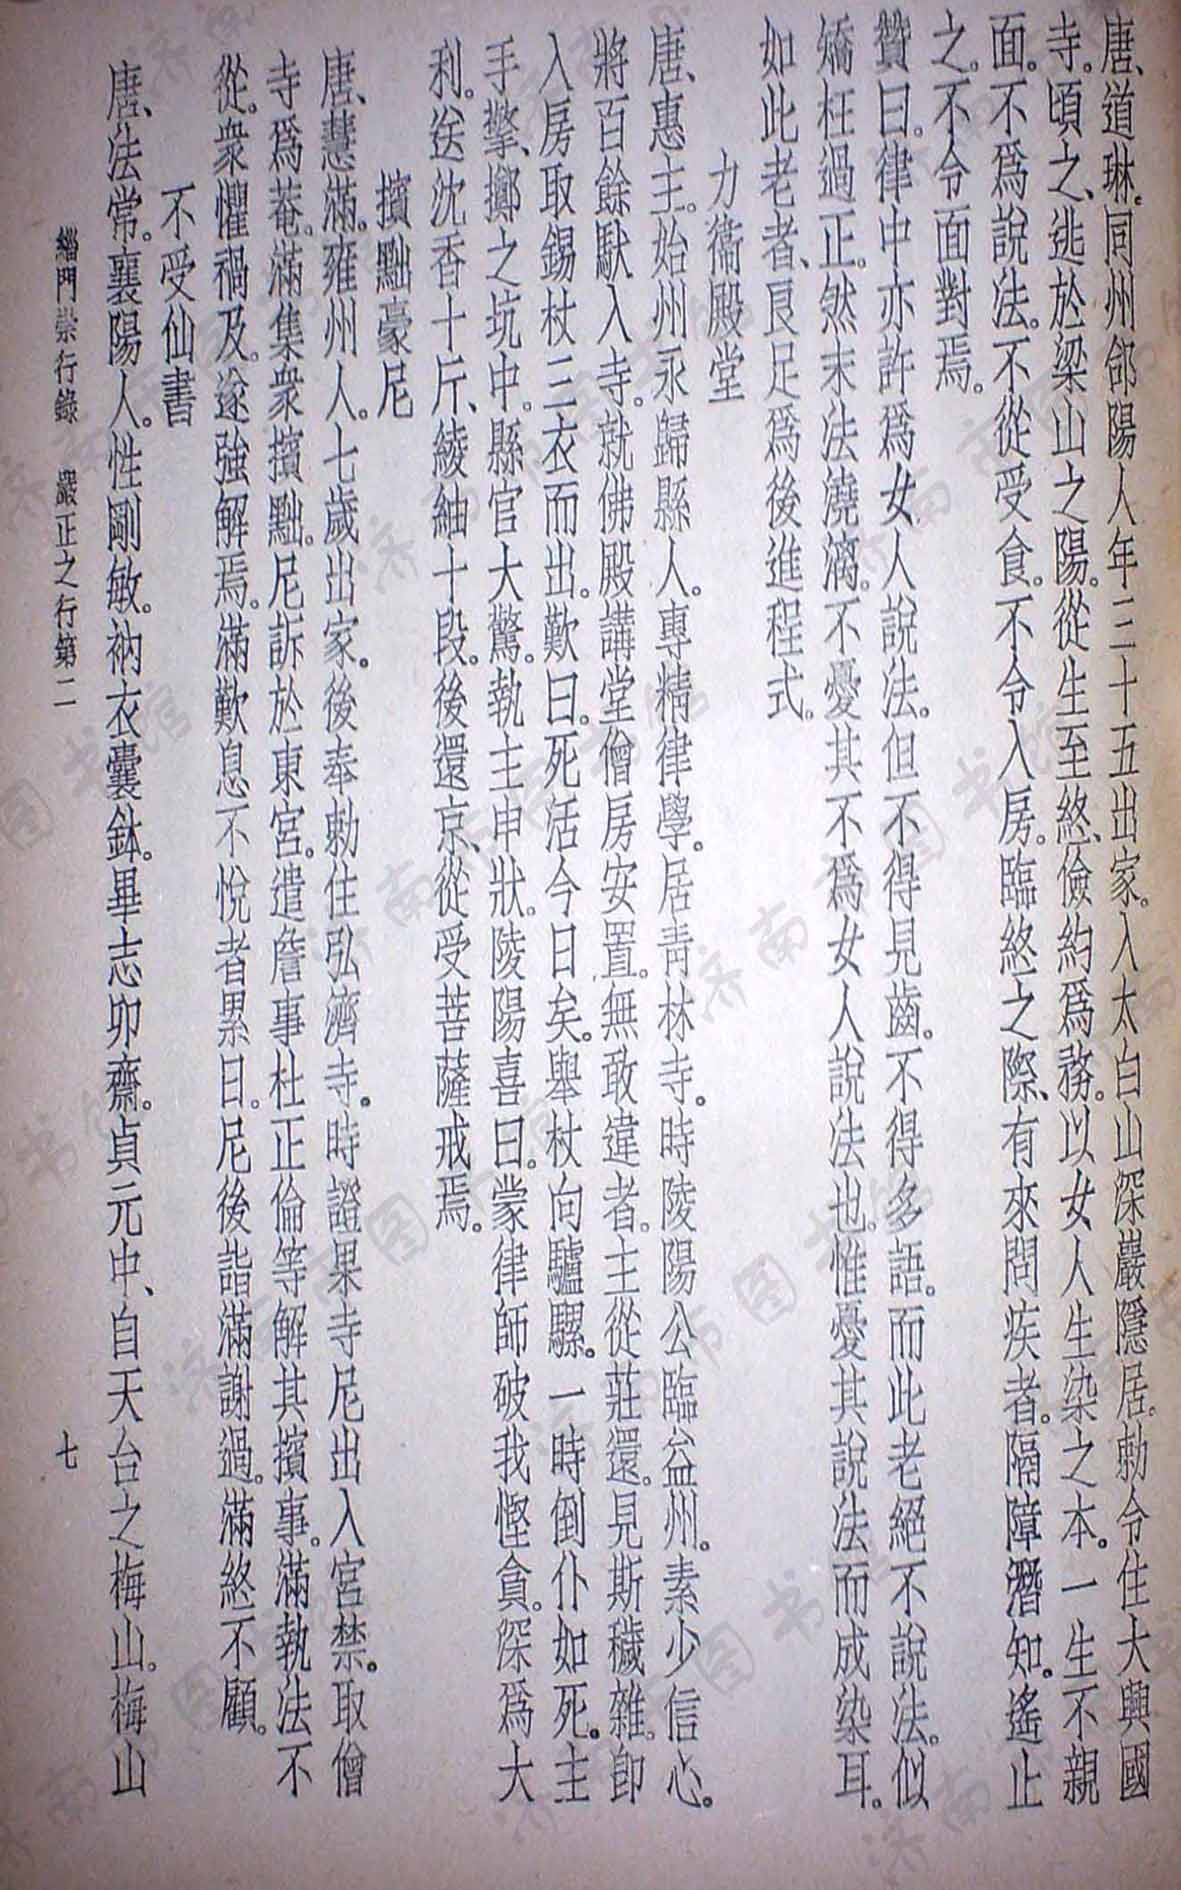 唐、道琳。同州郃陽人年三十五出家。入太白山深巖隱居。勅令住大興國
寺。頃之、逃於梁山之陽。從生至終、儉約爲務。以女人生染之本。一生不親
面。不爲說法。不從受食。不令入房。臨終之際、有來問疾者。隔障潛知。遙止
之。不令面對焉。
贊曰。律中亦許爲女人說法。但不得見齒。不得多語。而此老絕不說法。似
矯枉過正。然末法澆漓。不憂其不爲女人說法也。惟憂其說法而成染耳。
如此老者、良足爲後進程式。
力衞殿堂
唐、惠主。始州永歸縣人。專精律學。居靑林寺。時陵陽公臨益州。素少信心。
將百餘馱入寺。就佛殿講堂僧房安置。無敢違者。主從莊還。見斯穢雜。卽
入房取錫杖三衣而出。歎曰。死活今日矣。舉杖向驢騾。一時倒仆如死。主
手擎、擲之坑中。縣官大驚。執主申狀。陵陽喜曰。蒙律師破我慳貪。深爲大
利。送沈香十斤、綾紬十段。後還京、從受菩薩戒焉。
擯黜豪尼
唐、慧滿。雍州人。七歲出家。後奉勅住弘濟寺。時證果寺尼出入宮禁。取僧
寺爲菴。滿集衆擯黜。尼訴於東宮。遣詹事杜正倫等解其擯事。滿執法不
從。衆懼禍及。遂強解焉。滿歎息不悅者累日。尼後詣滿謝過。滿終不顧。
不受仙書
唐、法常。襄陽人。性剛敏。衲衣囊鉢。畢志卯齋。貞元中、自天台之梅山。梅山
緇門崇行錄 嚴正之行第二 七
济南市图书馆